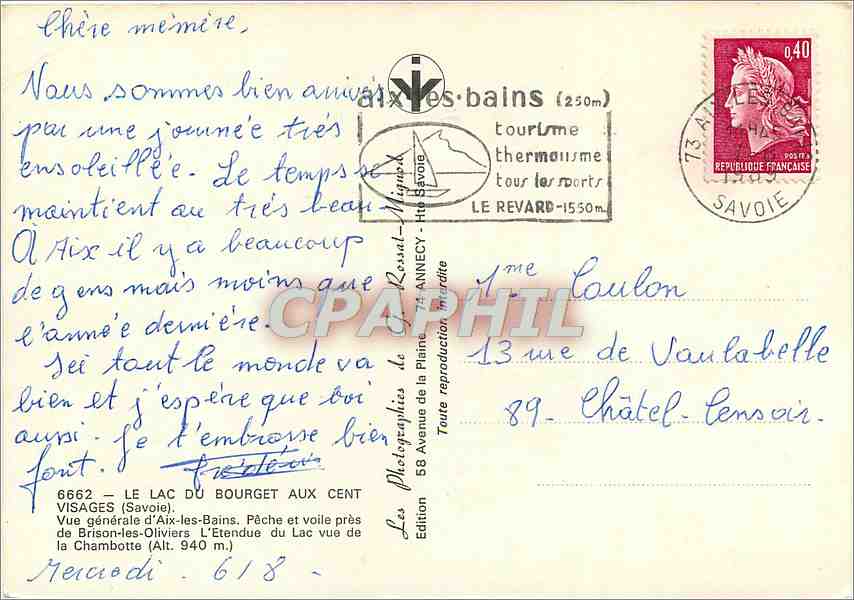 Chère mémère,
Nous sommes bien arrivés
par une journée très
ensoleillée. Le temps se
maintient au très beau.
À Aix il y a beaucoup
de gens mais moins que
l'année dernière.
Ici tout le monde va
bien et j'espère que toi
aussi. Je t'embrasse bien
fort.
Frédéric
6662 — LE LAC DU BOURGET AUX CENT
VISAGES (Savoie).
Vue générale d'Aix-les-Bains. Pêche et voile près
de Brison-les-Oliviers L'Etendue du Lac vue de
la Chambotte (Alt. 940 m.)
Mercredi . 6/8 .
Les Photographies de J. Rossat-Mignod
Edition 58 Avenue de la Plaine 74 ANNECY - Hte Savoie
Toute reproduction interdite
aix-les-bains (250m)
tourisme
thermalisme
tous les sports
LE REVARD-1550m
73 AIX LES BAINS
1969
SAVOIE
0,40
POSTES
REPUBLIQUE FRANÇAISE
Mme Coulon
13 rue de Vaulabelle
89- Châtel-Censoir.
CPAPHIL